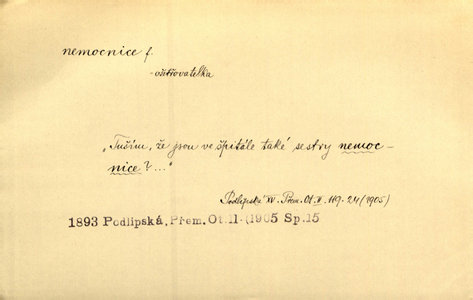 nemocnice f.
-ošetřovatelka
„Tuším, že jsou ve špitále také sestry nemoc-
nice?..."
Podlipská XV. Přem. Ot. II. 119-24 (1905)
1893 Podlipská, Přem. Ot. II- (1905 Sp. 15